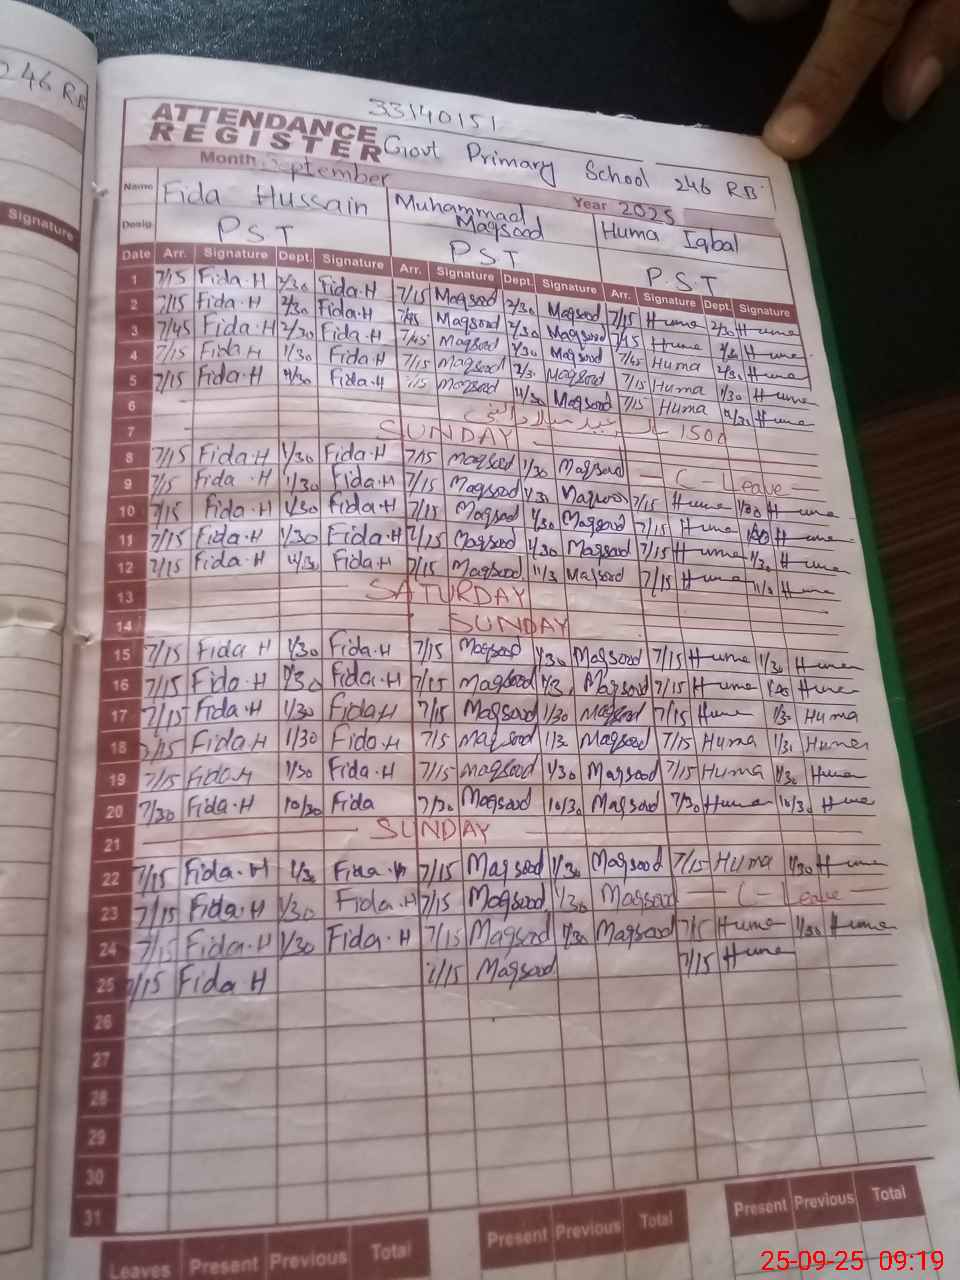 246 RB
Signature
33140151
ATTENDANCE REGISTER
Govt Primary School 246 RB
Month September
Year 2025
Name Fida Hussain Muhammad Maqsood Huma Iqbal
Desig. PST PST PST
Date Arr. Signature Dept. Signature Arr. Signature Dept. Signature Arr. Signature Dept. Signature
1 7/15 Fida.H 2/30 Fida.H 7/15 Maqsood 2/30 Maqsood 7/15 Huma 2/30 Huma
2 7/15 Fida.H 2/30 Fida.H 7/45 Maqsood 2/30 Maqsood 7/45 Huma Huma
3 7/45 Fida.H 2/30 Fida.H 7/45 Maqsood 1/30 Maqsood 7/45 Huma 2/30 Huma
4 7/15 Fida.H 1/30 Fida.H 7/15 Maqsood Maqsood 7/15 Huma 1/30 Huma
5 7/15 Fida.H 11/30 Fida.H 7/15 Maqsood 11/30 Maqsood 7/15 Huma Huma
6 عید میلاد النبی 1500
7 SUNDAY
8 7/15 Fida.H 1/30 Fida.H 7/15 Maqsood 1/30 Maqsood C-Leave
9 7/15 Fida.H 1/30 Fida.H 7/15 Maqsood 1/30 Maqsood 7/15 Huma 1/30 Huma
10 7/15 Fida.H 1/30 Fida.H 7/15 Maqsood 1/30 Maqsood 7/15 Huma Huma
11 7/15 Fida.H 1/30 Fida.H 7/15 Maqsood 1/30 Maqsood 7/15 Huma 1/30 Huma
12 7/15 Fida.H 11/30 Fida.H 7/15 Maqsood 11/3 Maqsood 7/15 Huma Huma
13 SATURDAY
14 SUNDAY
15 7/15 Fida H 1/30 Fida.H 7/15 Maqsood 1/30 Maqsood 7/15 Huma 1/30 Huma
16 7/15 Fida.H 1/30 Fida.H 7/15 Maqsood 1/3 Maqsood 7/15 Huma Huma
17 7/15 Fida.H 1/30 Fida H 7/15 Maqsood 1/30 Maqsood 7/15 Huma 1/30 Huma
18 7/15 Fida.H 1/30 Fida.H 7/15 Maqsood 1/30 Maqsood 7/15 Huma 1/30 Huma
19 7/15 Fida.H 1/30 Fida.H 7/15 Maqsood 1/30 Maqsood 7/15 Huma 1/30 Huma
20 7/30 Fida.H 10/30 Fida 7/30 Maqsood 10/30 Maqsood 7/30 Huma 10/30 Huma
21 SUNDAY
22 7/15 Fida.H 1/30 Fida.H 7/15 Maqsood 1/30 Maqsood 7/15 Huma 1/30 Huma
23 7/15 Fida.H 1/30 Fida.H 7/15 Maqsood 1/30 Maqsood C-Leave
24 7/15 Fida.H 1/30 Fida.H 7/15 Maqsood 1/30 Maqsood 7/15 Huma 1/30 Huma
25 7/15 Fida H 7/15 Maqsood 7/15 Huma
26
27
28
29
30
31
Leaves Present Previous Total Present Previous Total Present Previous Total
25-09-25 09:19